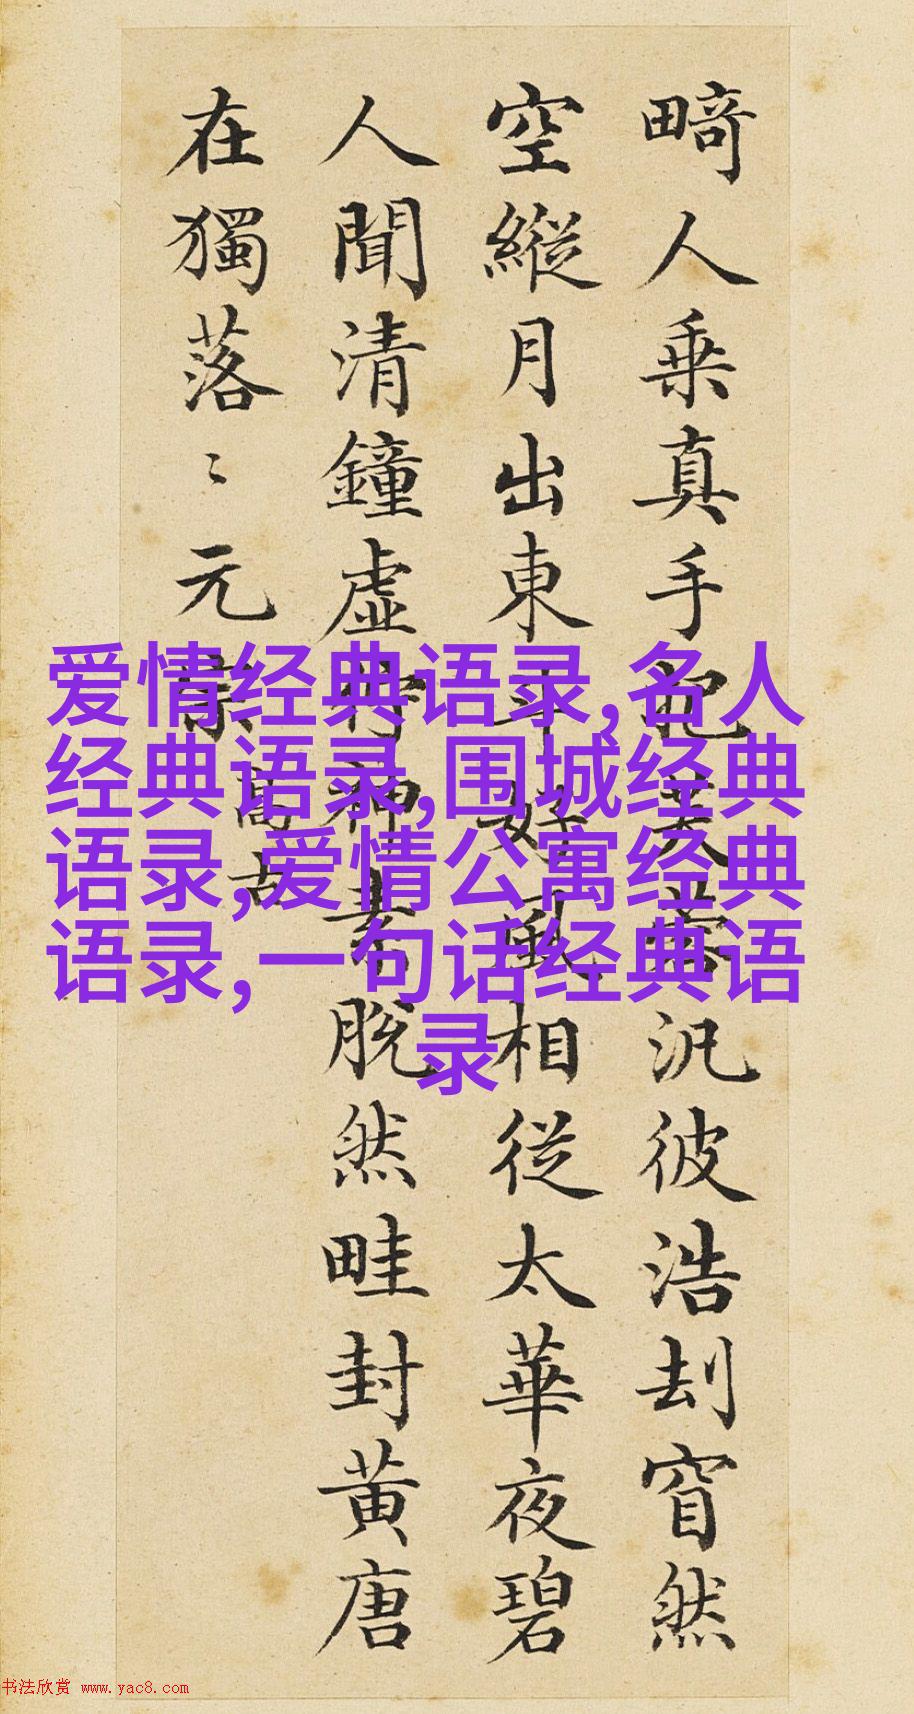 畸人乗真手把芙蓉汎彼浩刦窅然
空縱月出東斗好風相從太華夜碧
人聞清鐘虛佇神素脫然畦封黃唐
在獨落〻元宗
高古
爱情经典语录,名人
经典语录,围城经典
语录,爱情公寓经典
语录,一句话经典语
录
书法欣赏 www.yac8.com